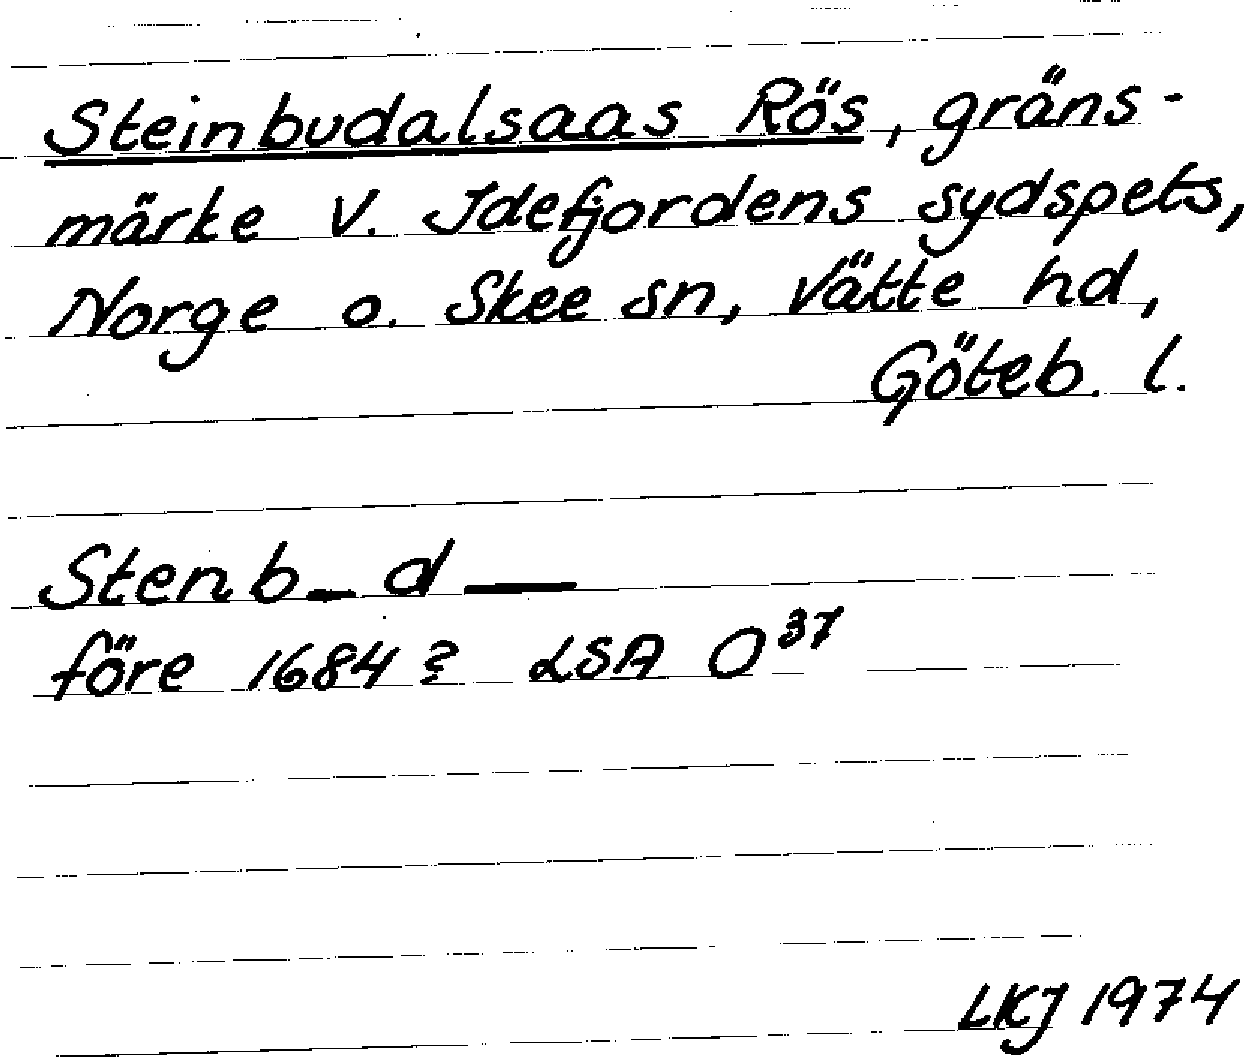 Steinbudalsaas Rös, gräns-
märke v. Idefjordens sydspets,
Norge o. Skee sn, Vätte hd,
Göteb. l.
Stenb_d—
före 1684? LSA O37
LKJ 1974